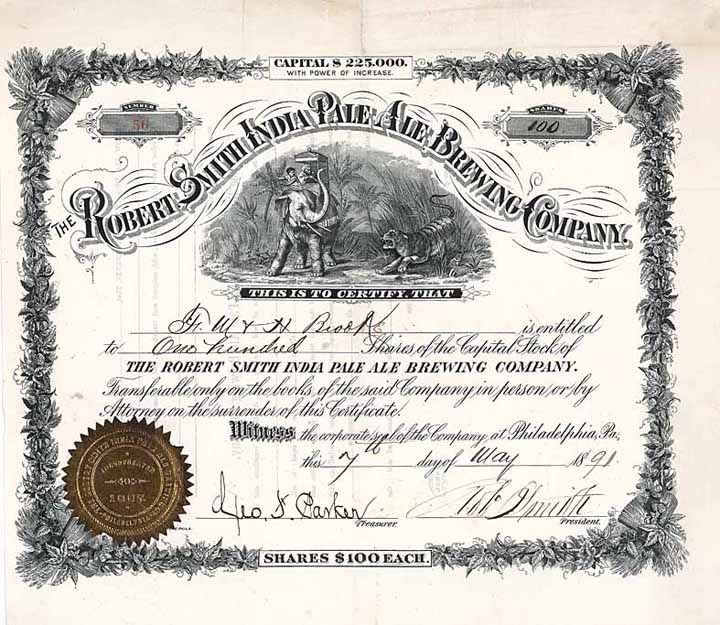 CAPITAL $ 225.000.
WITH POWER OF INCREASE.
NUMBER
56
SHARES
100
THE ROBERT SMITH INDIA PALE ALE BREWING COMPANY.
THIS IS TO CERTIFY, THAT
F. W. & H Brooke is entitled
to One hundred Shares of the Capital Stock of
THE ROBERT SMITH INDIA PALE ALE BREWING COMPANY.
Transferable only on the books of the said Company in person or by
Attorney on the surrender of this Certificate.
Witness the corporate seal of the Company at Philadelphia, Pa.,
this 7th day of May 1891
Geo. F. Parker
Treasurer.
Robt Smith
President.
INCORPORATED
1887
SHARES $100 EACH.